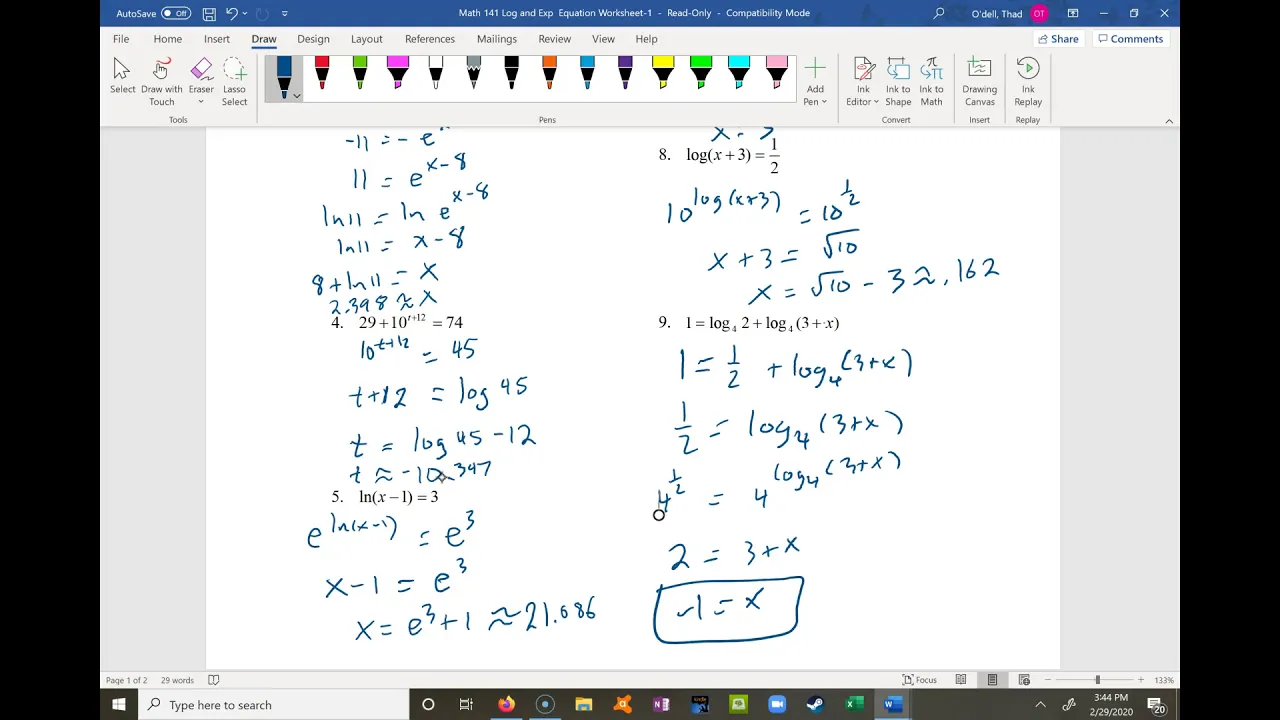 AutoSave Off
Math 141 Log and Exp Equation Worksheet-1 - Read-Only - Compatibility Mode
O'dell, Thad OT
File Home Insert Draw Design Layout References Mailings Review View Help
Share Comments
Select Draw with Touch Eraser Lasso Select
Add Pen
Ink Editor Ink to Shape Ink to Math Drawing Canvas Ink Replay
Tools Pens Convert Insert Replay
-11 = - e^x
11 = e^{x-8}
ln 11 = ln e^{x-8}
ln 11 = x-8
8 + ln 11 = x
2.398 ≈ x
4. 29 + 10^{t+12} = 74
10^{t+12} = 45
t+12 = log 45
t = log 45 - 12
t ≈ -10.347
5. ln(x-1) = 3
e^{ln(x-1)} = e^3
x-1 = e^3
x = e^3 + 1 ≈ 21.086
x = 3
8. log(x+3) = 1/2
10^{log(x+3)} = 10^{1/2}
x + 3 = √10
x = √10 - 3 ≈ .162
9. 1 = log₄ 2 + log₄ (3 + x)
1 = 1/2 + log₄ (3+x)
1/2 = log₄ (3+x)
4^{1/2} = 4^{log₄ (3+x)}
2 = 3+x
-1 = x
Page 1 of 2 29 words
Focus
133%
Type here to search
3:44 PM
2/29/2020
20